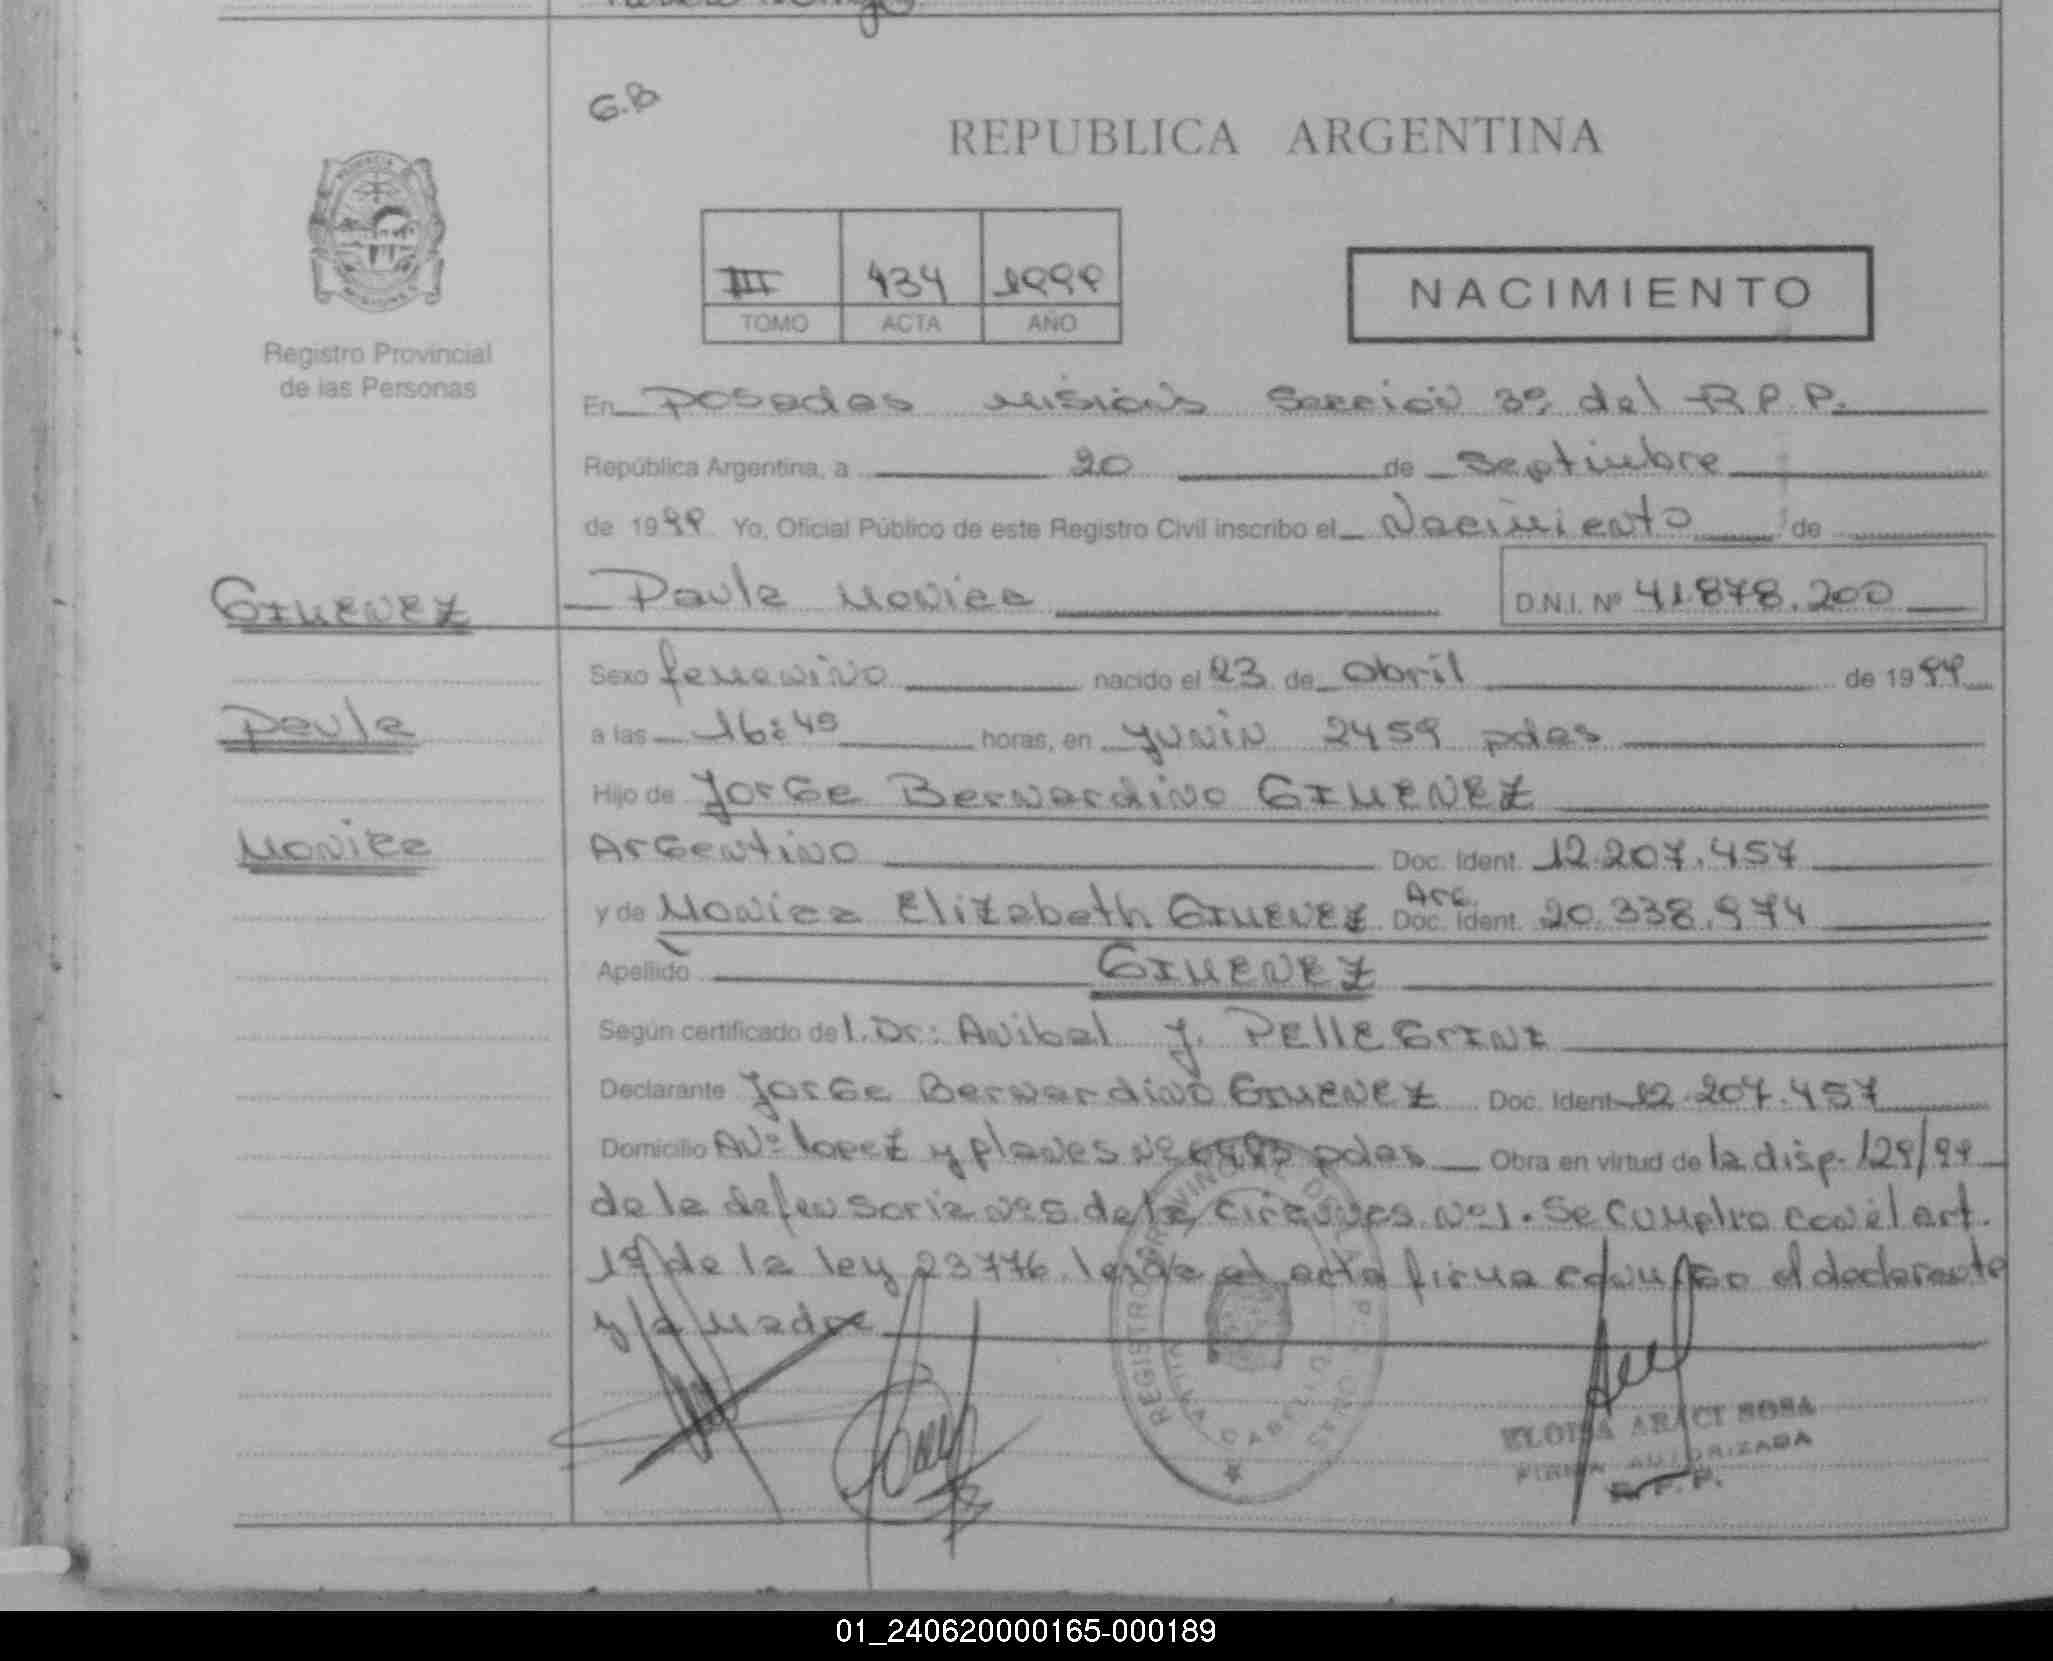 G.B
REPUBLICA ARGENTINA
III 434 1999
TOMO ACTA AÑO
NACIMIENTO
Registro Provincial
de las Personas
En Posadas Misiones Seccion 3º del R.P.P.
República Argentina, a 20 de Septiembre
de 1999 Yo, Oficial Público de este Registro Civil inscribo el Nacimiento de
GIMENEZ
Paula Monica D.N.I. Nº 41.878.200
Sexo femenino nacido el 23 de Abril de 1999
Paula
a las 16:45 horas, en Junin 2459 pdas
Hijo de Jorge Bernardino GIMENEZ
Monica
Argentino Doc. Ident. 12.207.457
y de Monica Elizabeth GIMENEZ Arg. Doc. Ident. 20.338.974
Apellido GIMENEZ
Según certificado de l. Dr: Anibal J. PELLEGRINI
Declarante Jorge Bernardino GIMENEZ Doc. Ident. 12.207.457
Domicilio Avº lopez y planes Nº pdas Obra en virtud de la disp. 129/99
de la defensoria Nº5 de la circuncs. Nº1. Se cumplio con el art.
1º de la ley 23776 leida el acta firma conmigo el declarante
y la madre
REGISTRO PROVINCIAL DE LAS PERSONAS
ELOISA ARACI SOSA
FIRMA AUTORIZADA
R.P.P.
01_240620000165-000189